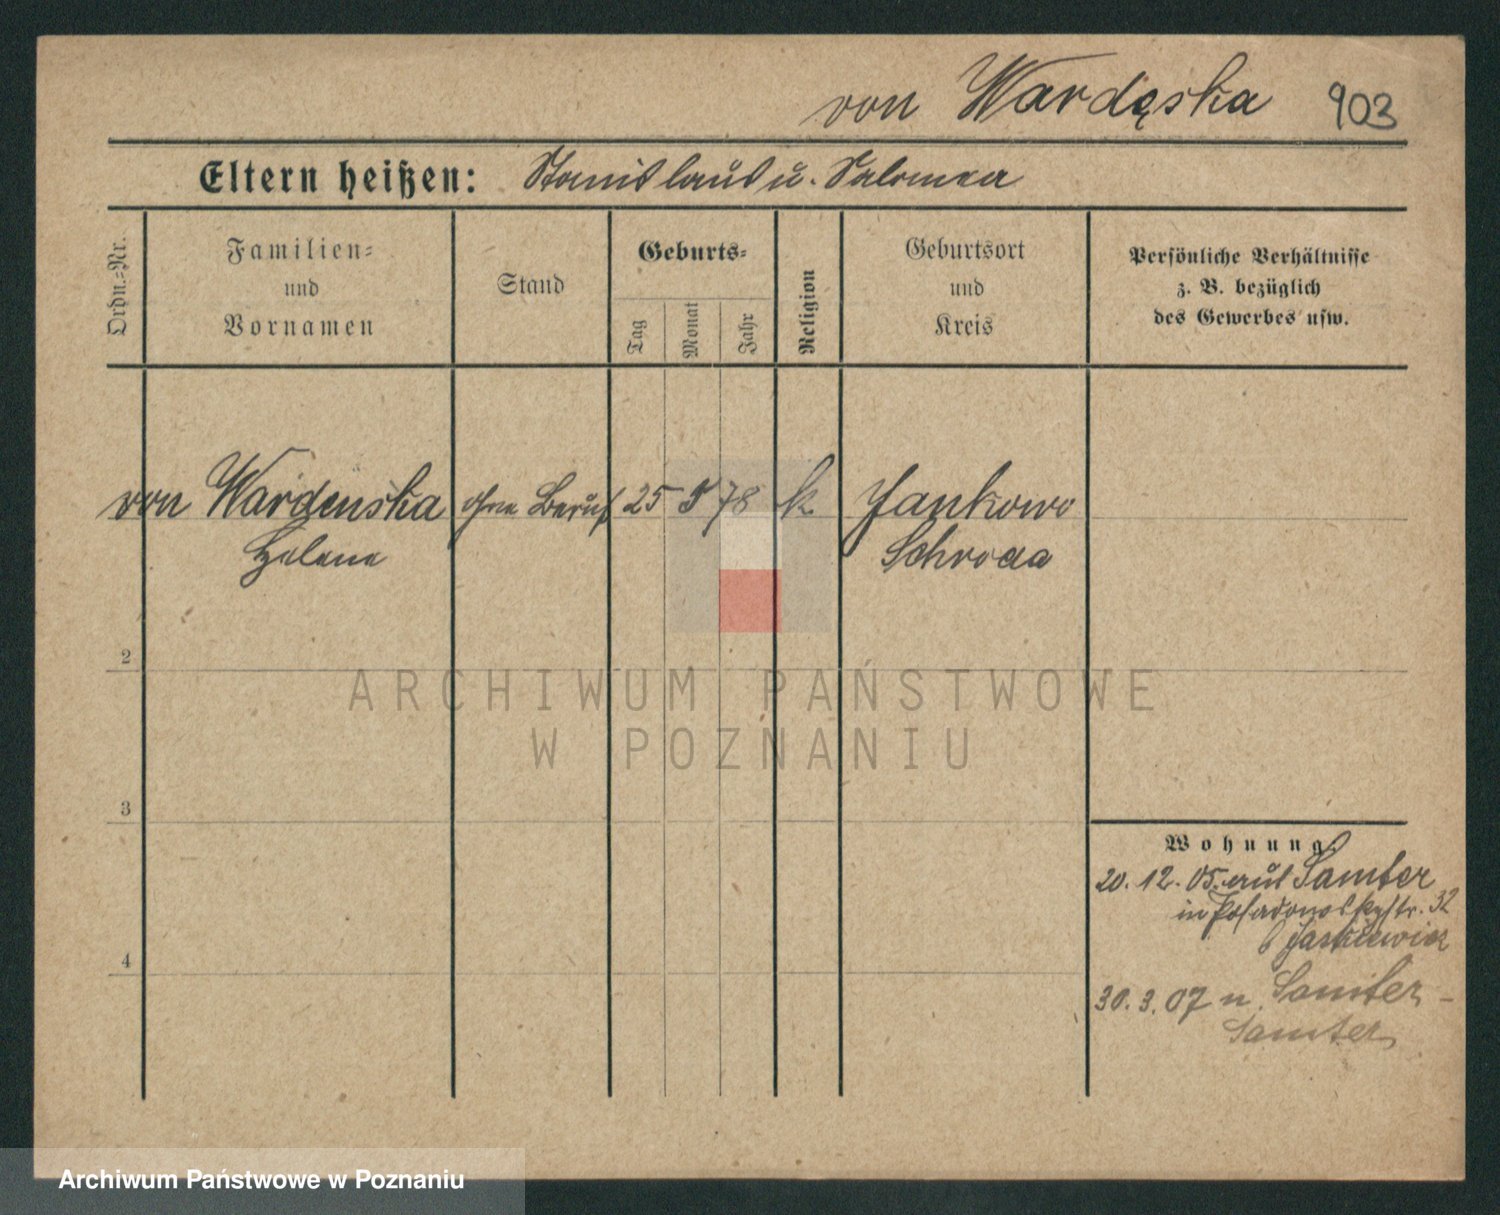 von Wardęska 903
Eltern heißen: Stanislaus u. Salomea
Ordn.=Nr.
Familien=
und
Vornamen
Stand
Geburts=
Tag
Monat
Jahr
Religion
Geburtsort
und
Kreis
Persönliche Verhältnisse
z. B. bezüglich
des Gewerbes usw.
von Wardenska ohne Beruf 25 5 78 k. Jankowo
Helene Schroda
2
3
4
Wohnung
20. 12. 05. aus Samter
in Posadowskystr. 32
30. 3. 07 n. Samter -
Samter
ARCHIWUM PAŃSTWOWE
W POZNANIU
Archiwum Państwowe w Poznaniu